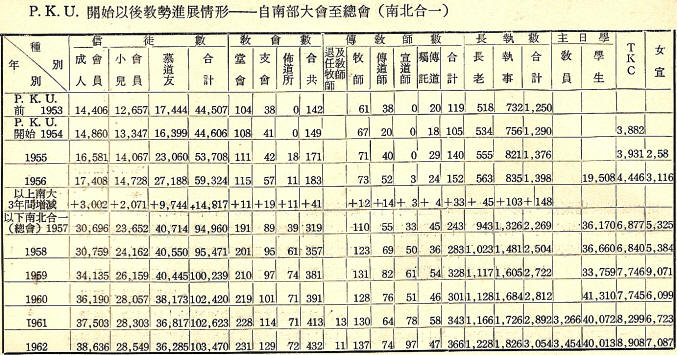 P. K. U. 開始以後教勢進展情形——自南部大會至總會(南北合一)
種別 年別 信徒數 教會數 傳教師數 長執數 主日學 TKC 女宣
成會人員 小會兒員 慕道友 合計 堂會 支會 佈道所 合共 退任牧師及教師 牧師 傳道師 宣道師 囑託 合計 長老 執事 合計 教員 學生
P. K. U. 前 1953 14,406 12,657 17,444 44,507 104 38 0 142 61 38 0 20 119 518 732 1,250
P. K. U. 開始 1954 14,860 13,347 16,399 44,606 108 41 0 149 67 20 0 18 105 534 756 1,290 3,882
1955 16,581 14,067 23,060 53,708 111 42 18 171 71 40 0 29 140 555 821 1,376 3,931 2,58
1956 17,408 14,728 27,188 59,324 115 57 11 183 73 52 3 24 152 563 835 1,398 19,508 4,446 3,116
以上南大 3年間增減 +3,002 +2,071 +9,744 +14,817 +11 +19 +11 +41 +12 +14 + 3 + 4 +33 + 45 +103 +148
以下南北合一 (總會) 1957 30,696 23,652 40,714 94,960 191 89 39 319 110 55 33 45 243 943 1,326 2,269 36,170 6,877 5,325
1958 30,759 24,162 40,550 95,471 201 95 61 357 123 69 50 36 283 1,023 1,481 2,504 36,660 6,840 5,384
1959 34,135 26,159 40,445 100,239 210 97 74 381 131 82 61 54 328 1,117 1,605 2,722 33,759 7,746 9,071
1960 36,190 28,057 38,173 102,420 219 101 71 391 128 76 51 46 301 1,128 1,684 2,812 41,310 7,745 6,099
1961 37,503 28,303 36,817 102,623 228 114 71 413 13 130 64 78 58 343 1,166 1,726 2,892 3,266 40,072 8,299 6,723
1962 38,636 28,549 36,285 103,470 231 129 72 432 11 137 74 97 47 366 1,228 1,826 3,054 3,454 40,013 8,908 7,087